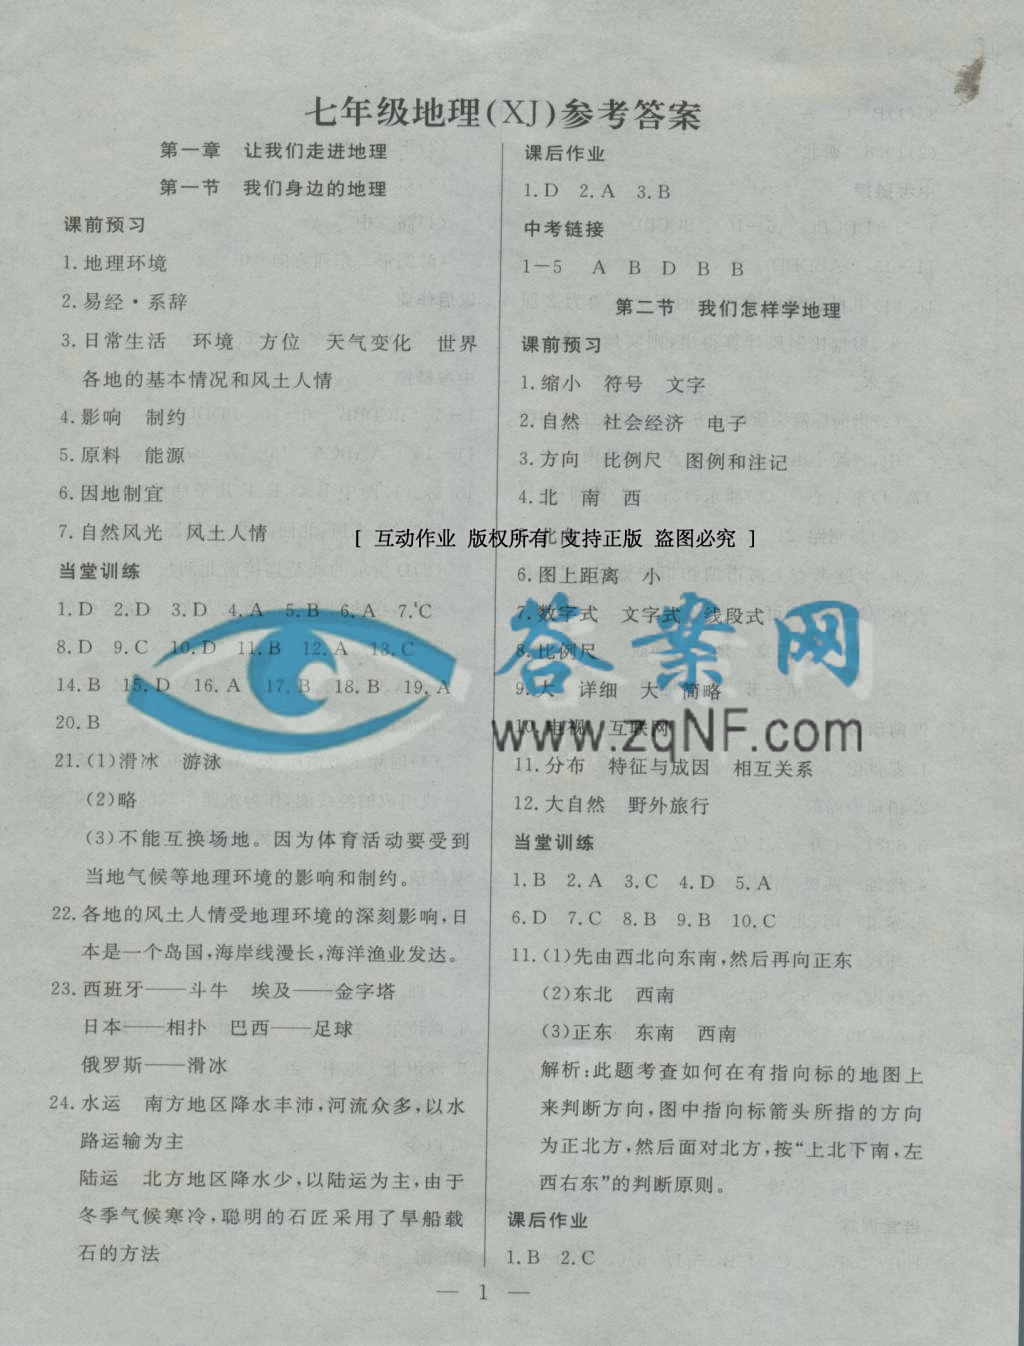 七年级地理(XJ)参考答案
第一章 让我们走进地理
第一节 我们身边的地理
课前预习
1.地理环境
2.易经·系辞
3.日常生活 环境 方位 天气变化 世界
各地的基本情况和风土人情
4.影响 制约
5.原料 能源
6.因地制宜
7.自然风光 风土人情
当堂训练
1.D 2.D 3.D 4.A 5.B 6.A 7.C
8.D 9.C 10.D 11.B 12.A 13.C
14.B 15.D 16.A 17.B 18.B 19.A
20.B
21.(1)滑冰 游泳
(2)略
(3)不能互换场地。因为体育活动要受到
当地气候等地理环境的影响和制约。
22.各地的风土人情受地理环境的深刻影响,日
本是一个岛国,海岸线漫长,海洋渔业发达。
23.西班牙——斗牛 埃及——金字塔
日本——相扑 巴西——足球
俄罗斯——滑冰
24.水运 南方地区降水丰沛,河流众多,以水
路运输为主
陆运 北方地区降水少,以陆运为主,由于
冬季气候寒冷,聪明的石匠采用了旱船载
石的方法
课后作业
1.D 2.A 3.B
中考链接
1—5 A B D B B
第二节 我们怎样学地理
课前预习
1.缩小 符号 文字
2.自然 社会经济 电子
3.方向 比例尺 图例和注记
4.北 南 西
[ 互动作业 版权所有 支持正版 盗图必究 ]
6.图上距离 小
7.数字式 文字式 线段式
8.比例尺
9.大 详细 大 简略
10.电视 互联网
11.分布 特征与成因 相互关系
12.大自然 野外旅行
当堂训练
1.B 2.A 3.C 4.D 5.A
6.D 7.C 8.B 9.B 10.C
11.(1)先由西北向东南,然后再向正东
(2)东北 西南
(3)正东 东南 西南
解析:此题考查如何在有指向标的地图上
来判断方向,图中指向标箭头所指的方向
为正北方,然后面对北方,按“上北下南,左
西右东”的判断原则。
课后作业
1.B 2.C
答案网
www.zqNF.com
— 1 —